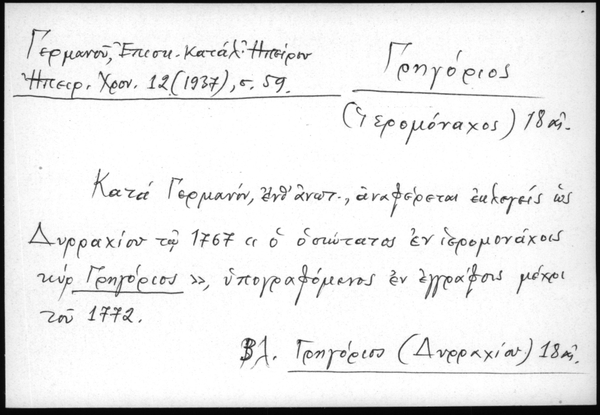 Γερμανοῦ, Ἐπισκ. Κατάλ. Ἠπείρου
Ἠπειρ. Χρον. 12 (1937), σ. 59.
Γρηγόριος
(Ἱερομόναχος) 18 αἰ.
Κατά Γερμανόν, ἔνθ' ἀνωτ., ἀναφέρεται ἐκλογείς ὡς
Δυρραχίου τῷ 1767 «ὁ ὁσιώτατος ἐν ἱερομονάχοις
κύρ Γρηγόριος», ὑπογραφόμενος ἐν ἐγγράφοις μέχρι
τοῦ 1772.
Βλ. Γρηγόριος (Δυρραχίου) 18 αἰ.